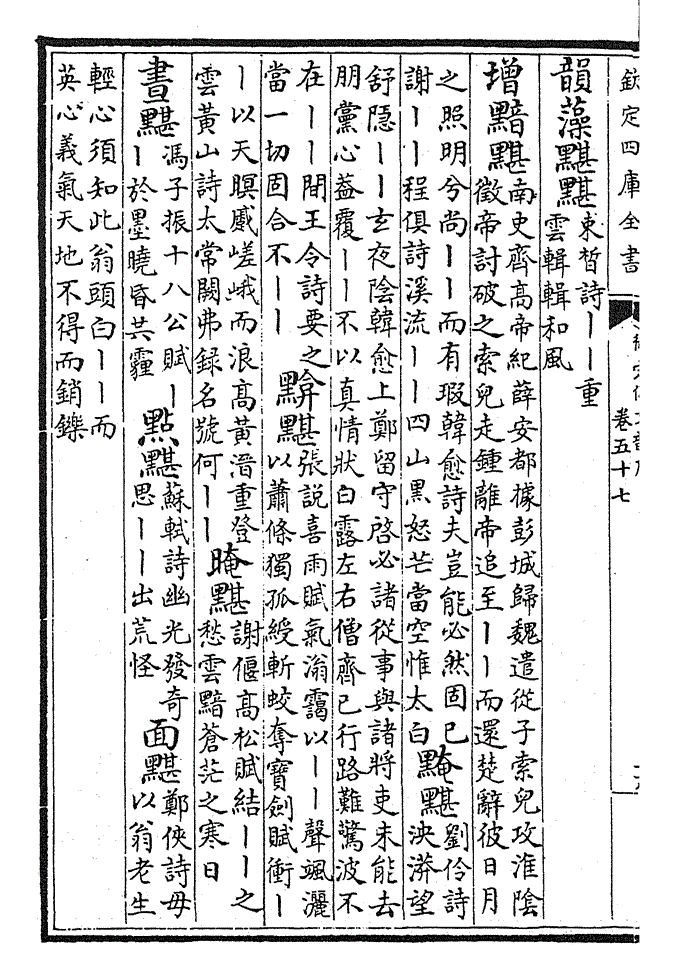 欽定四庫全書
卷五十七
韻藻黮黮束晳詩丨丨重
雲輯輯和風
增黯黮南史齊高帝紀薛安都據彭城歸魏遣從子索兒攻淮陰
徵帝討破之索兒走鍾離帝追至丨丨而還楚辭彼日月
之照明兮尚丨丨而有瑕韓愈詩夫豈能必然固已
謝丨丨程俱詩溪流丨丨四山黑怒芒當空惟太白
黤黮劉伶詩
泱漭望
舒隱丨丨玄夜陰韓愈上鄭留守啓必諸從事與諸將吏未能去
朋黨心葢覆丨丨不以真情狀白露左右僧齊已行路難驚波不
在丨丨間王令詩要之
當一切固合不丨丨
黭黮張説喜雨賦氣滃靄以丨丨聲颯灑
以蕭條獨孤綬斬蛟奪寶劍賦衝丨
丨以天暝慼嵯峨而浪高黃滔重登
雲黃山詩太常闕弗録名號何丨丨
晻黮謝偃高松賦結丨丨之
愁雲黯蒼茫之寒日
晝黮馮子振十八公賦丨
丨於墨曉昏共霾
點黮蘇軾詩幽光發奇
思丨丨出荒怪
面黮鄭俠詩毋
以翁老生
輕心須知此翁頭白丨丨而
英心義氣天地不得而銷鑠